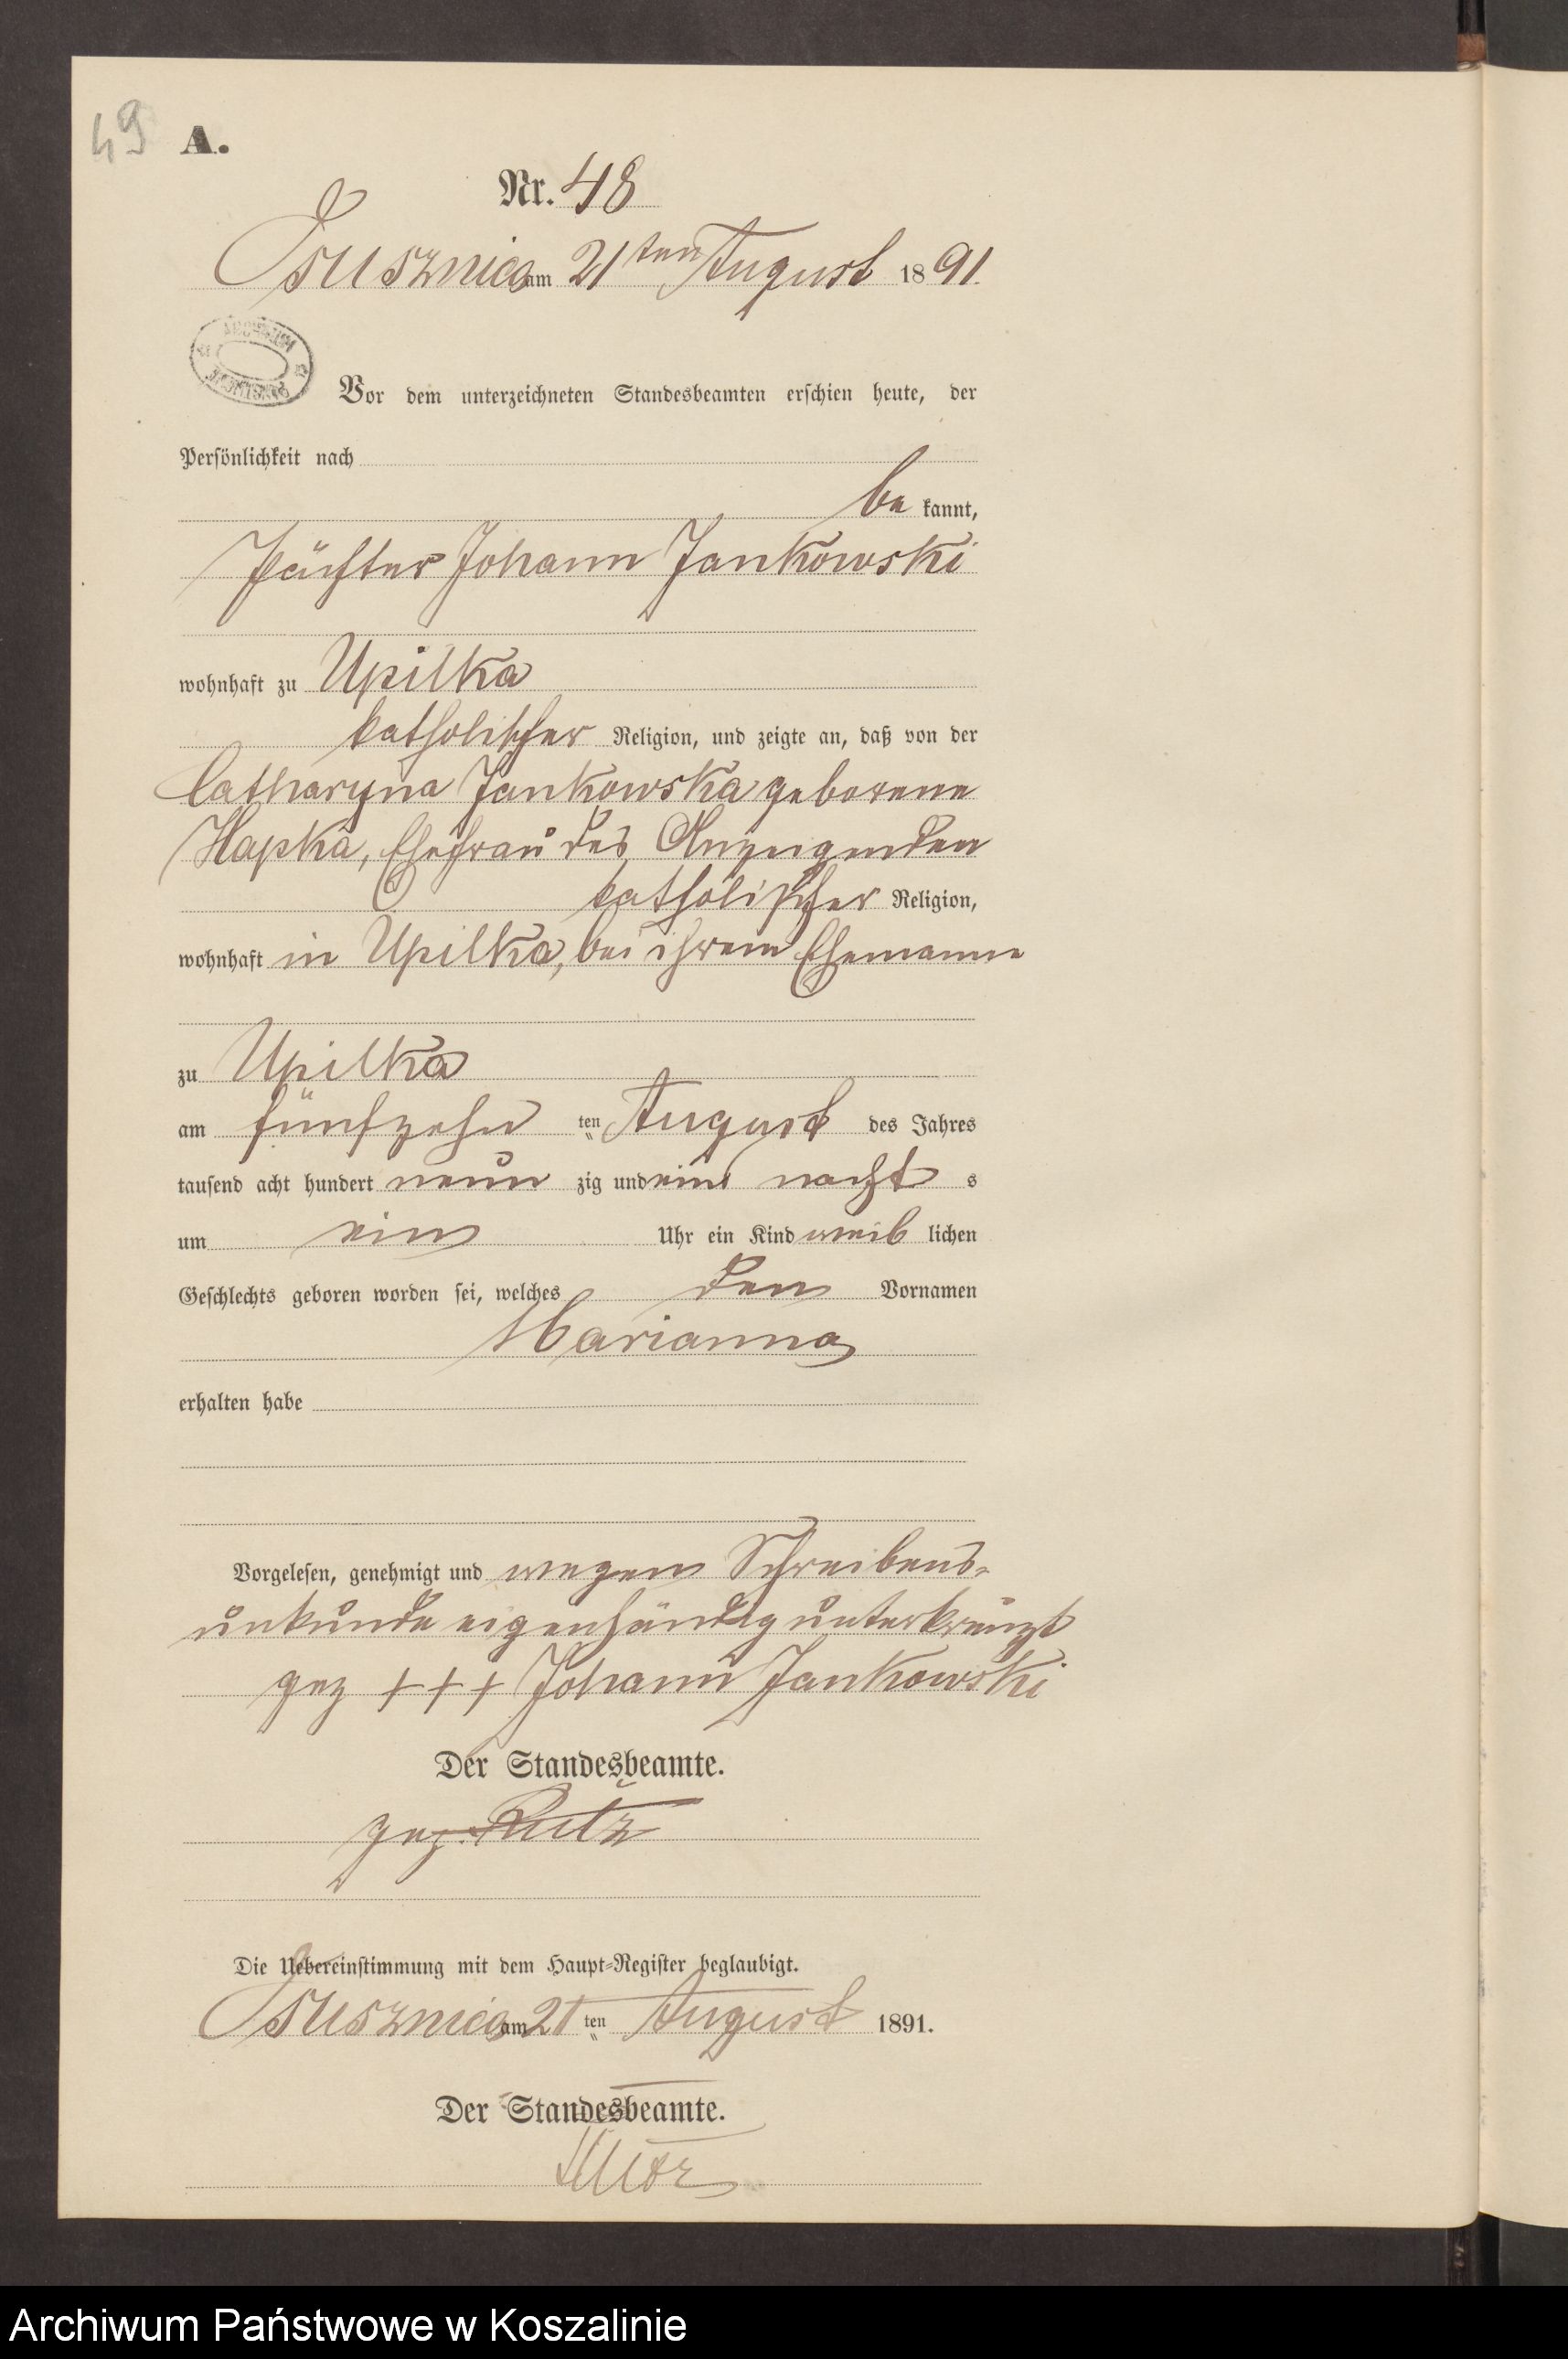 49 A.
Nr. 48
am 21ten August 1891.
Vor dem unterzeichneten Standesbeamten erschien heute, der
Persönlichkeit nach
be kannt,
Pächter Johann Jankowski
wohnhaft zu Upilka
katholischer Religion, und zeigte an, daß von der
Catharyna Jankowska geborene
Hapka, Ehefrau des Anzeigenden
katholischer Religion,
wohnhaft in Upilka, bei ihrem Ehemanne
zu Upilka
am fünfzehn ten August des Jahres
tausend acht hundert neun zig und eins nacht s
um ein Uhr ein Kind weib lichen
Geschlechts geboren worden sei, welches den Vornamen
Marianna
erhalten habe
Vorgelesen, genehmigt und wegen Schreibens-
unkunde eigenhändig unterkreuzt
gez +++ Johann Jankowski
Der Standesbeamte.
gez.
Die Uebereinstimmung mit dem Haupt-Register beglaubigt.
am 21 ten August 1891.
Der Standesbeamte.
Archiwum Państwowe w Koszalinie